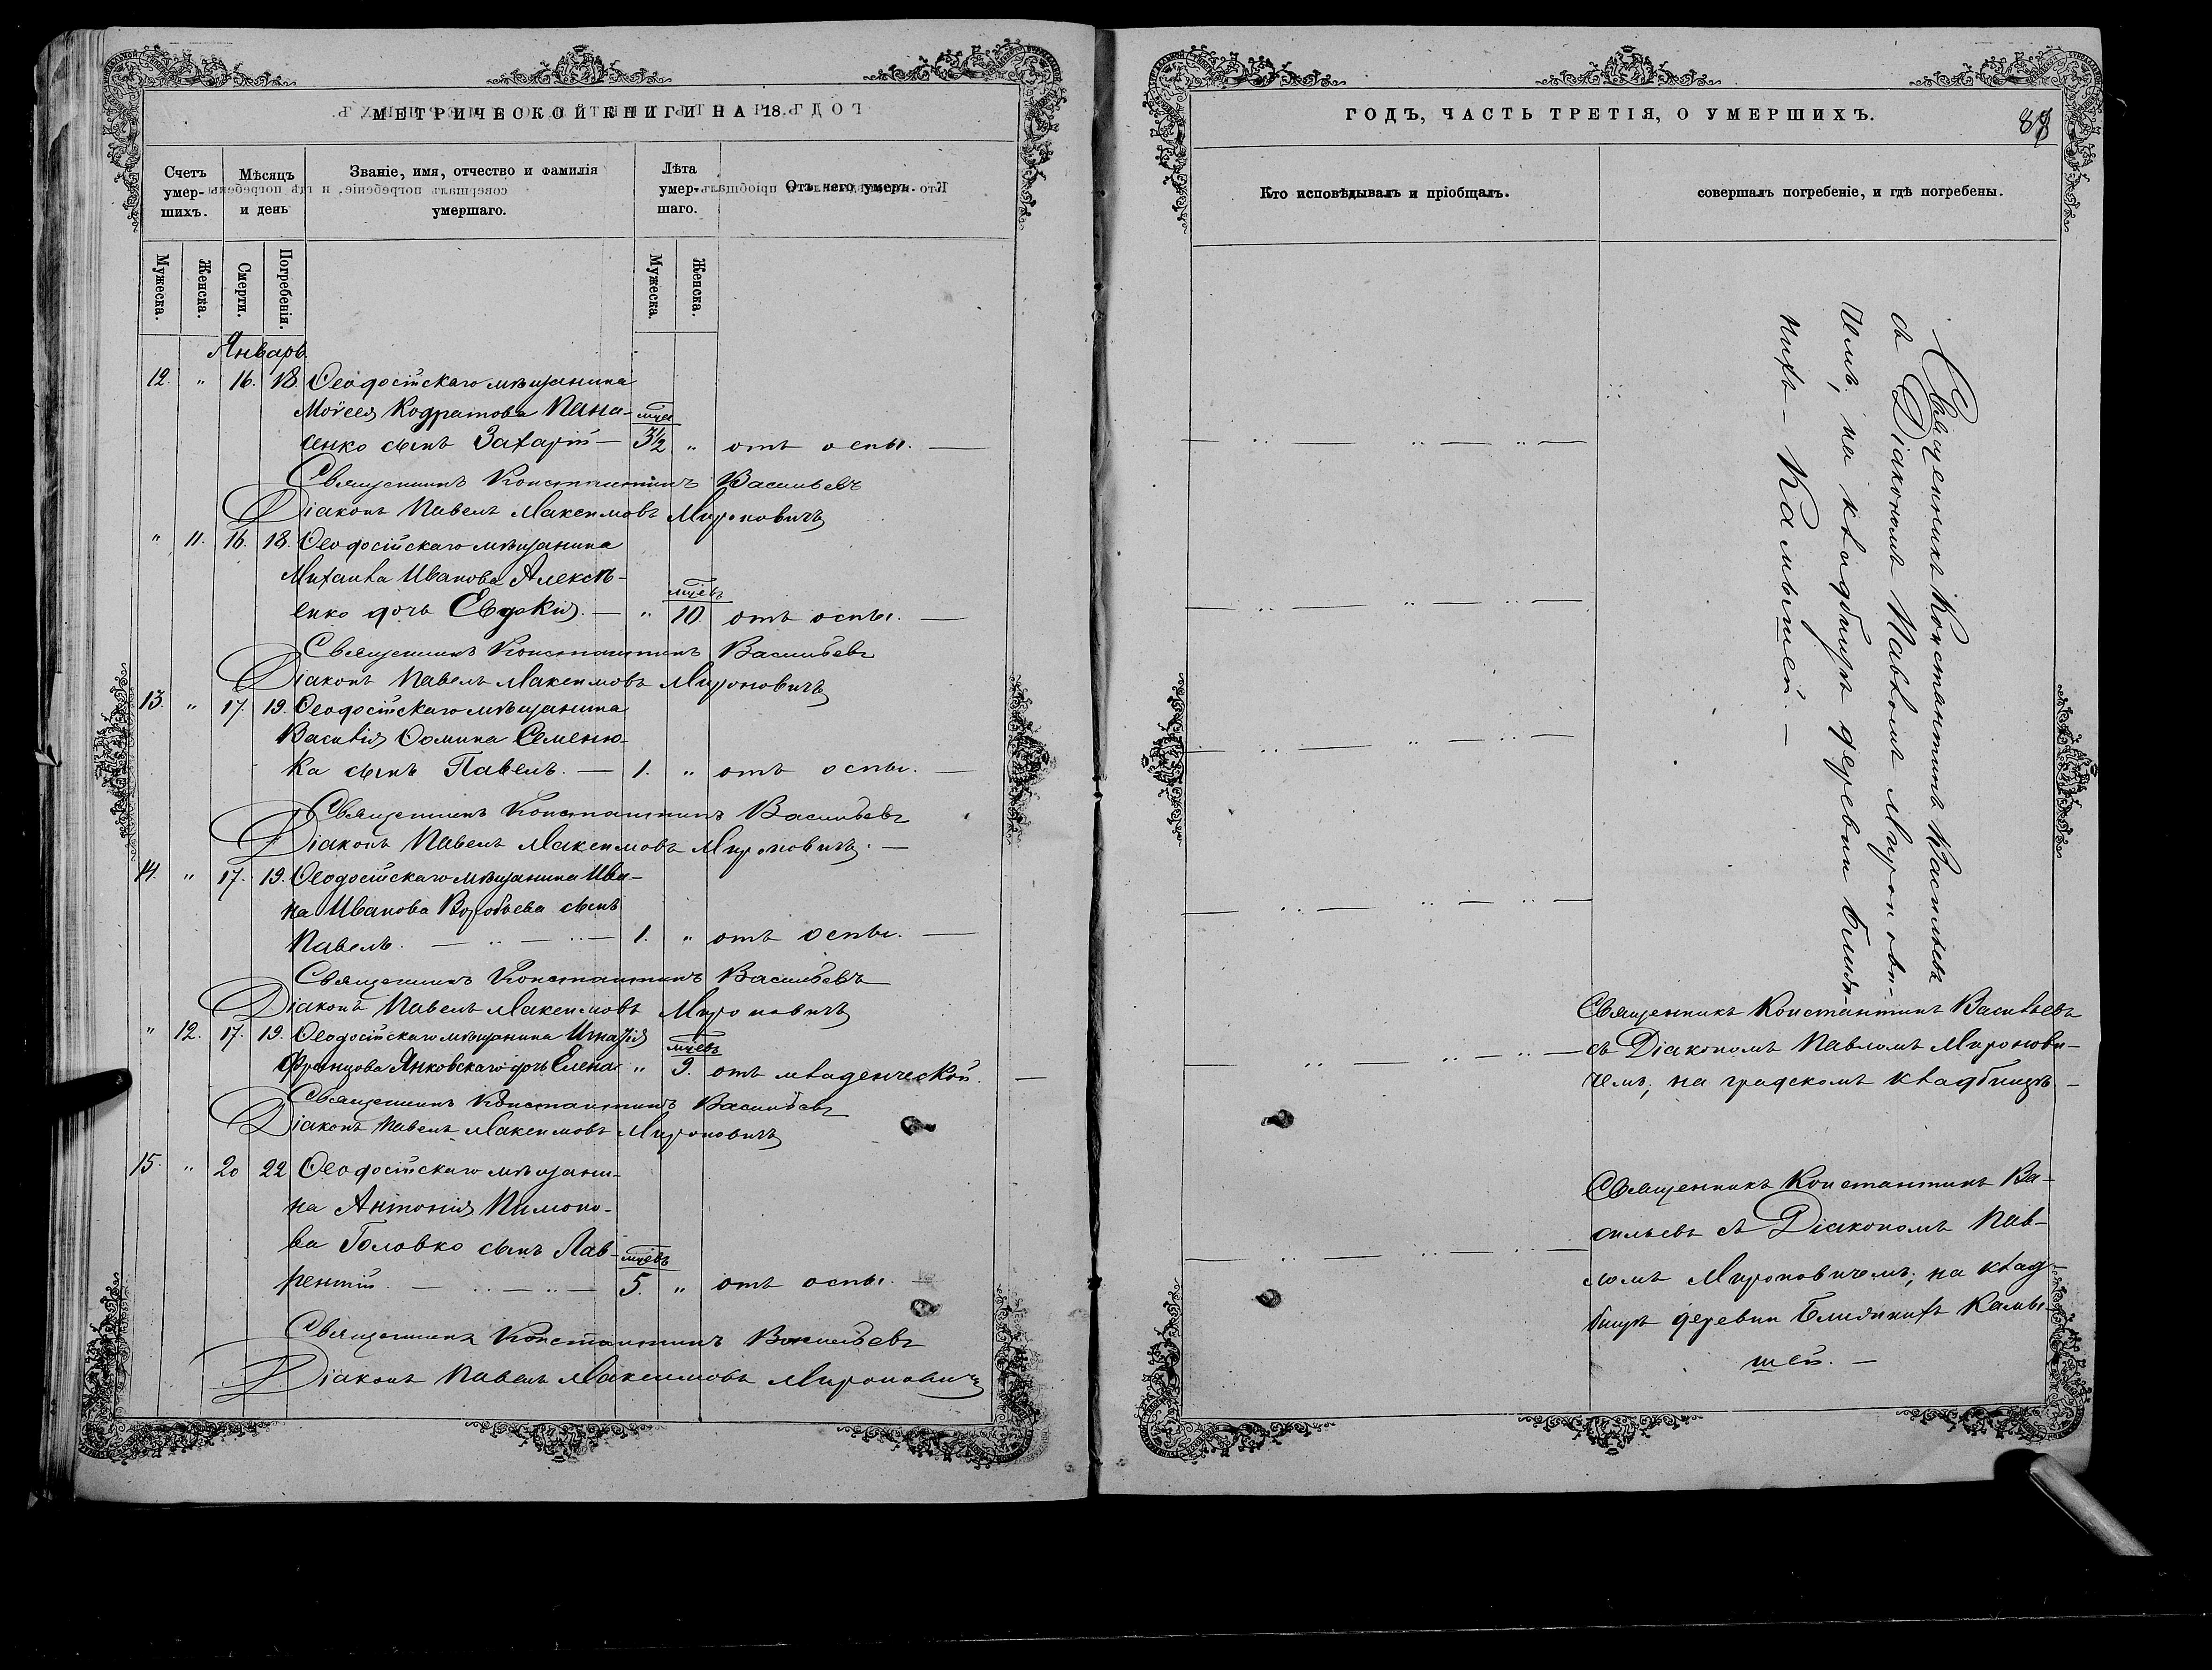 МЕТРИЧЕСКОЙ КНИГИ НА 18
Счетъ умер-шихъ.
Мѣсяцъ и день
Званіе, имя, отчество и фамилія умершаго.
Лѣта умер-шаго.
Отъ чего умеръ.
Мужеска.
Женска.
Смерти.
Погребенія.
Мужеска.
Женска.
Январь
12. " 16. 18. Ѳеодосійскаго мѣщанина
Моѵсея Кодратова Пана-
сенко сынъ Захарій — мцевъ 3½ " отъ оспы. —
Священникъ Константинъ Васильевъ
Діаконъ Павелъ Максимовъ Мироновичъ
" 11. 16. 18. Ѳеодосійскаго мѣщанина
Михаила Иванова Алексѣ-
енко дочь Евдокія. — " мцевъ 10 отъ оспы. —
Священникъ Константинъ Васильевъ
Діаконъ Павелъ Максимовъ Мироновичъ
13. " 17. 19. Ѳеодосійскаго мѣщанина
Василія Ѳомина Семеню-
ка сынъ Павелъ. — 1. " отъ оспы. —
Священникъ Константинъ Васильевъ
Діаконъ Павелъ Максимовъ Мироновичъ. —
14. " 17. 19. Ѳеодосійскаго мѣщанина Ива-
на Иванова Воробьева сынъ
Павелъ. — .. — .. — 1. " отъ оспы. —
Священникъ Константинъ Васильевъ
Діаконъ Павелъ Максимовъ Мироновичъ
" 12. 17. 19. Ѳеодосійскаго мѣщанина Игнатія
Францова Янковскаго дочь Елена " мцевъ 9. отъ младенческой. —
Священникъ Константинъ Васильевъ
Діаконъ Павелъ Максимовъ Мироновичъ
15. " 20 22 Ѳеодосійскаго мѣщани-
на Антонія Пимоно-
ва Головко сынъ Лав-
рентій. — .. — .. — мцевъ 5. " отъ оспы. —
Священникъ Константинъ Васильевъ
Діаконъ Павелъ Максимовъ Мироновичъ
ГОДЪ, ЧАСТЬ ТРЕТІЯ, О УМЕРШИХЪ.
Кто исповѣдывалъ и пріобщалъ.
совершалъ погребеніе, и гдѣ погребены.
Священникъ Константинъ Васильевъ
съ Діакономъ Павломъ Миронови-
чемъ, на кладбищѣ деревни Ближ-
нихъ-Камышей. —
Священникъ Константинъ Васильевъ
съ Діакономъ Павломъ Миронови-
чемъ, на градскомъ кладбищѣ. —
Священникъ Константинъ Ва-
сильевъ съ Діакономъ Пав-
ломъ Мироновичемъ, на клад-
бищѣ деревни Ближнихъ Камы-
шей. —